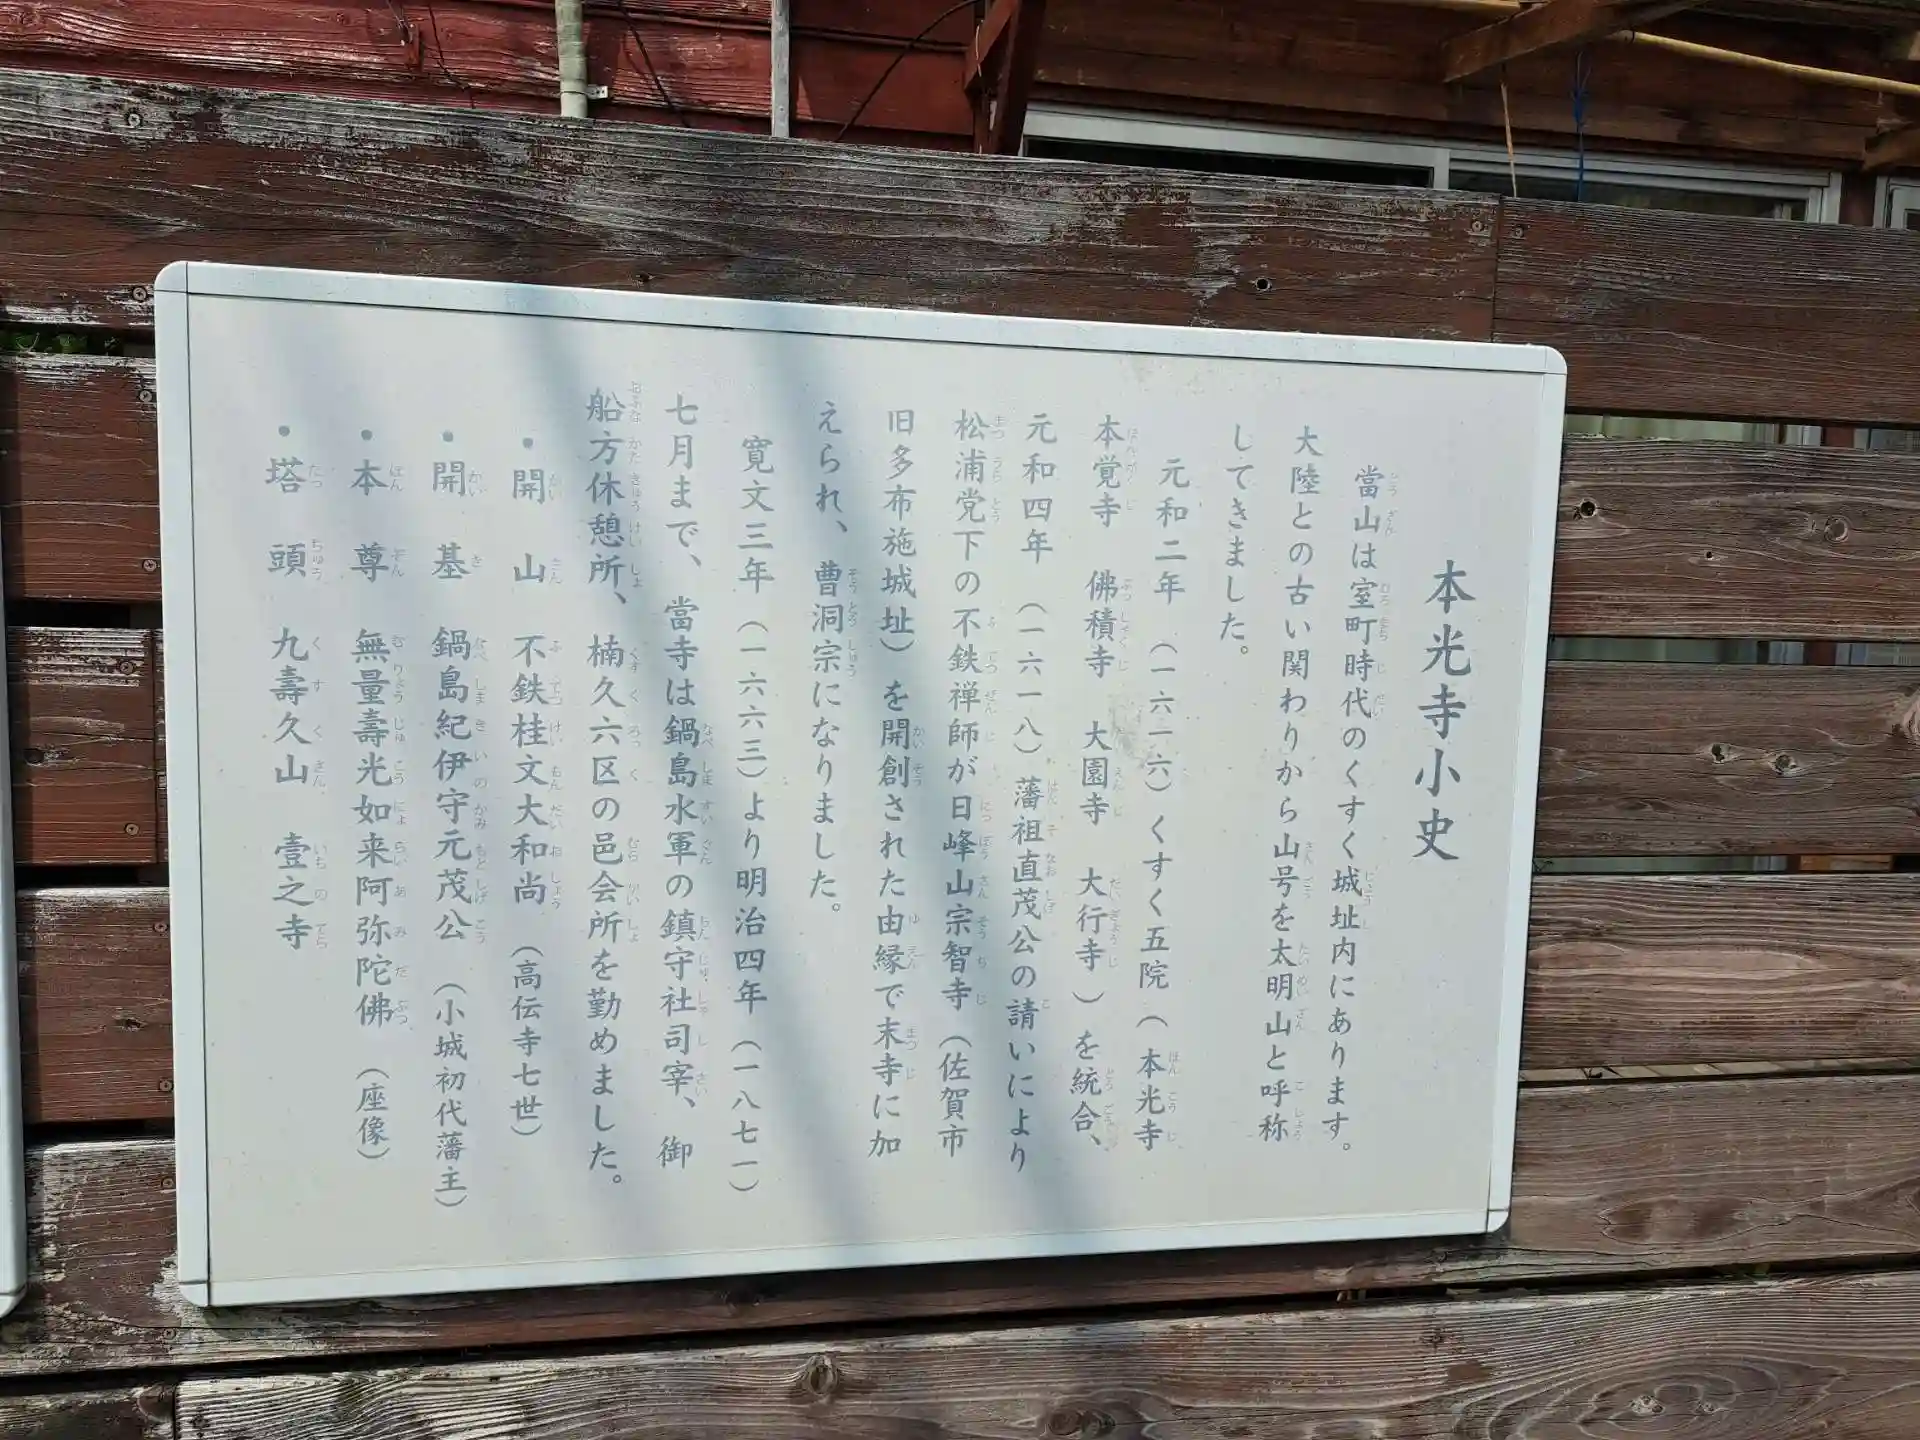 本光寺小史
當山は室町時代のくすく城址内にあります。
大陸との古い関わりから山号を太明山と呼称
してきました。
元和二年（一六一六）くすく五院（本光寺
本覚寺　佛積寺　大園寺　大行寺）を統合、
元和四年（一六一八）藩祖直茂公の請いにより
松浦党下の不鉄禅師が日峰山宗智寺（佐賀市
旧多布施城址）を開創された由縁で末寺に加
えられ、曹洞宗になりました。
寛文三年（一六六三）より明治四年（一八七一）
七月まで、當寺は鍋島水軍の鎮守社司宰、御
船方休憩所、楠久六区の邑会所を勤めました。
・開　山　不鉄桂文大和尚（高伝寺七世）
・開　基　鍋島紀伊守元茂公（小城初代藩主）
・本　尊　無量壽光如来阿弥陀佛（座像）
・塔　頭　九壽久山　壹之寺